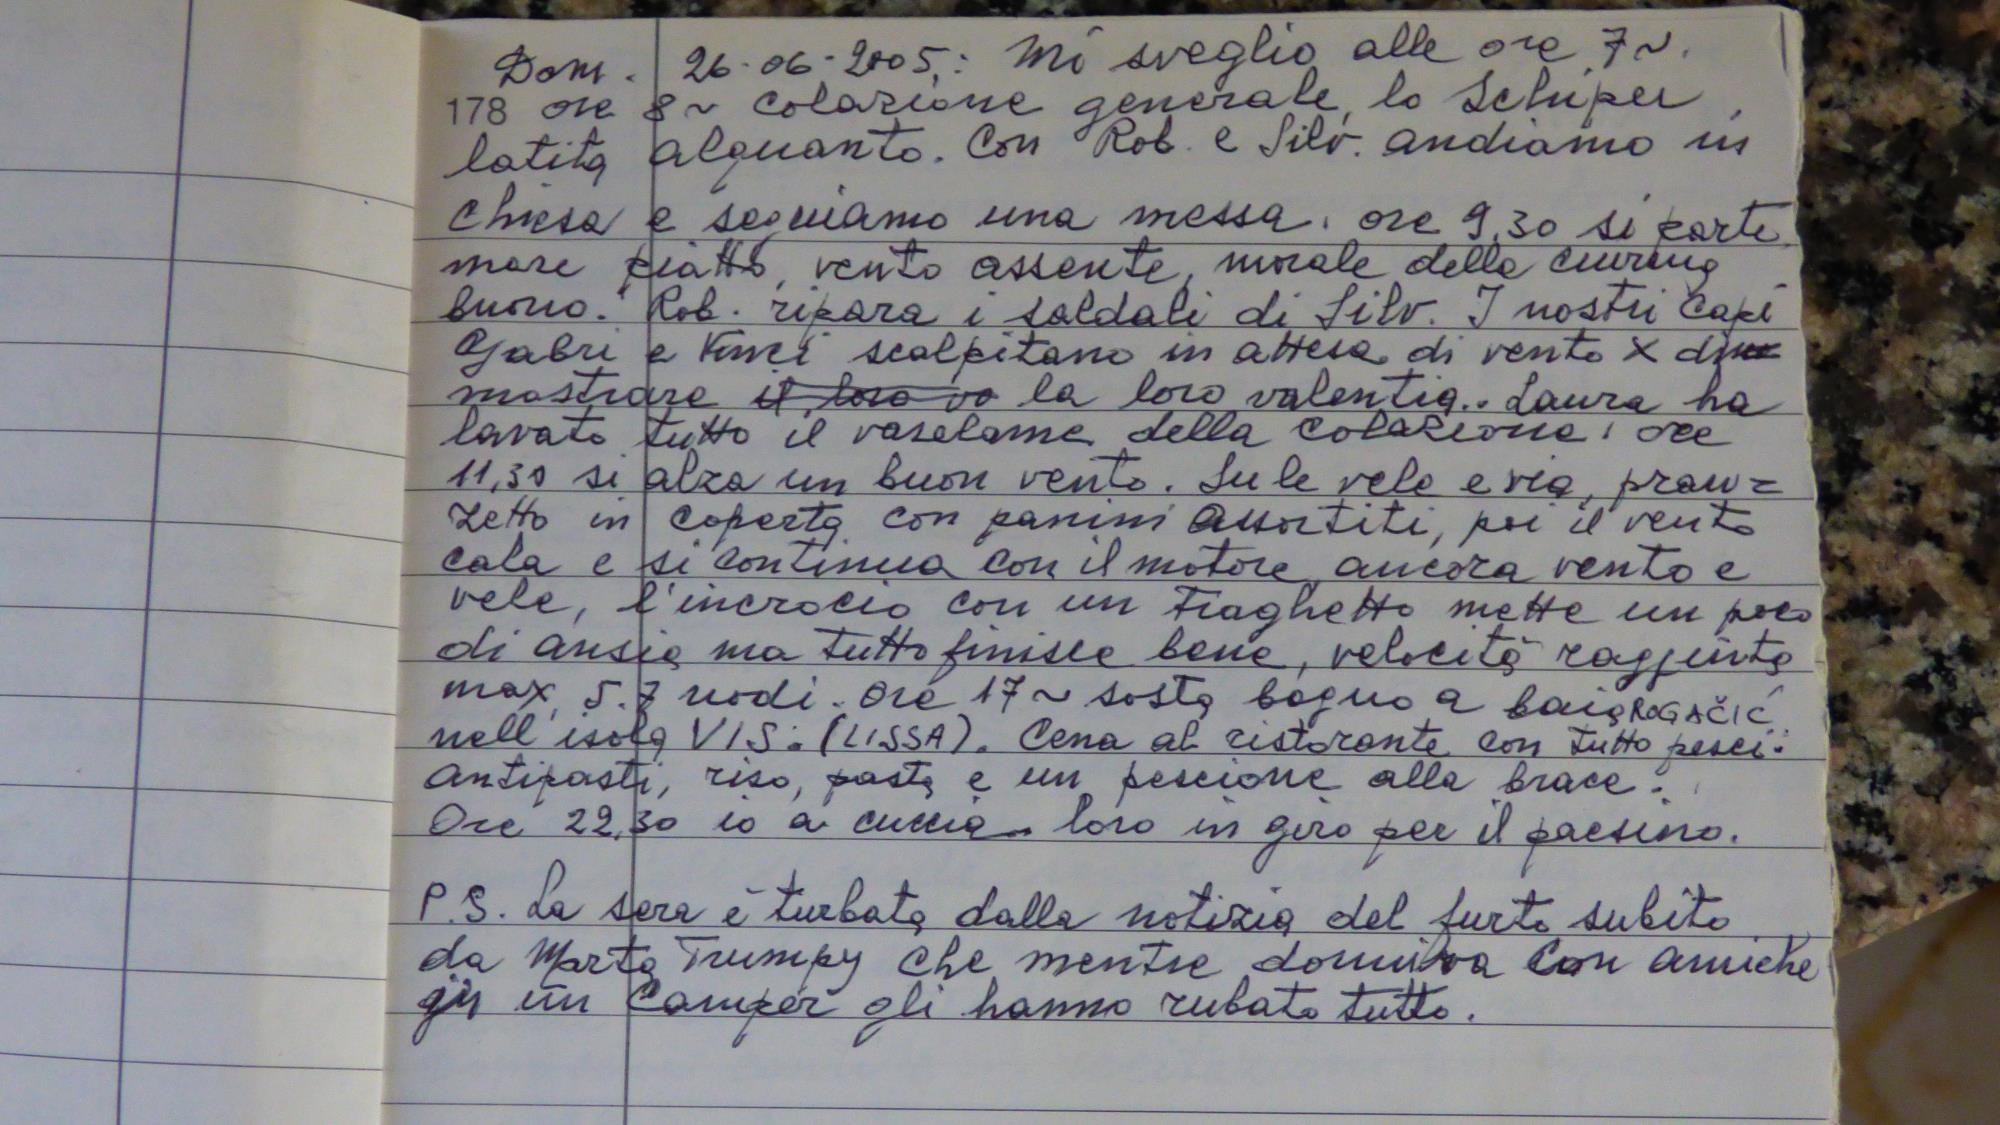 Dom. 26-06-2005,: Mi sveglio alle ore 7~.
178 ore 8~ colazione generale, lo Schiper
latita alquanto. Con Rob. e Silv. andiamo in
chiesa e seguiamo una messa. ore 9,30 si parte,
mare piatto, vento assente, morale della ciurma
buono. Rob. ripara i saldali di Silv. I nostri Capi
Gabri e Vinci scalpitano in attesa di vento x di
mostrare il loro va la loro valentia.. Laura ha
lavato tutto il vaselame della colazione. ore
11,30 si alza un buon vento. Su le vele e via, pran=
zetto in coperta con panini assortiti, poi il vento
cala e si continua con il motore, ancora vento e
vele, l'incrocio con un Traghetto mette un poco
di ansia ma tutto finisce bene, velocità raggiunta
max, 5.7 nodi. Ore 17~ sosta bagno a baia ROGAČIĆ
nell'isola VIS: (LISSA). Cena al ristorante con tutto pesci:
antipasti, riso, pasta e un pescione alla brace.
Ore 22,30 io a cuccia. loro in giro per il paesino.
P.S. La sera è turbata dalla notizia del furto subito
da Marta Trumpy che mentre dormiva con amiche
in un Camper gli hanno rubato tutto.